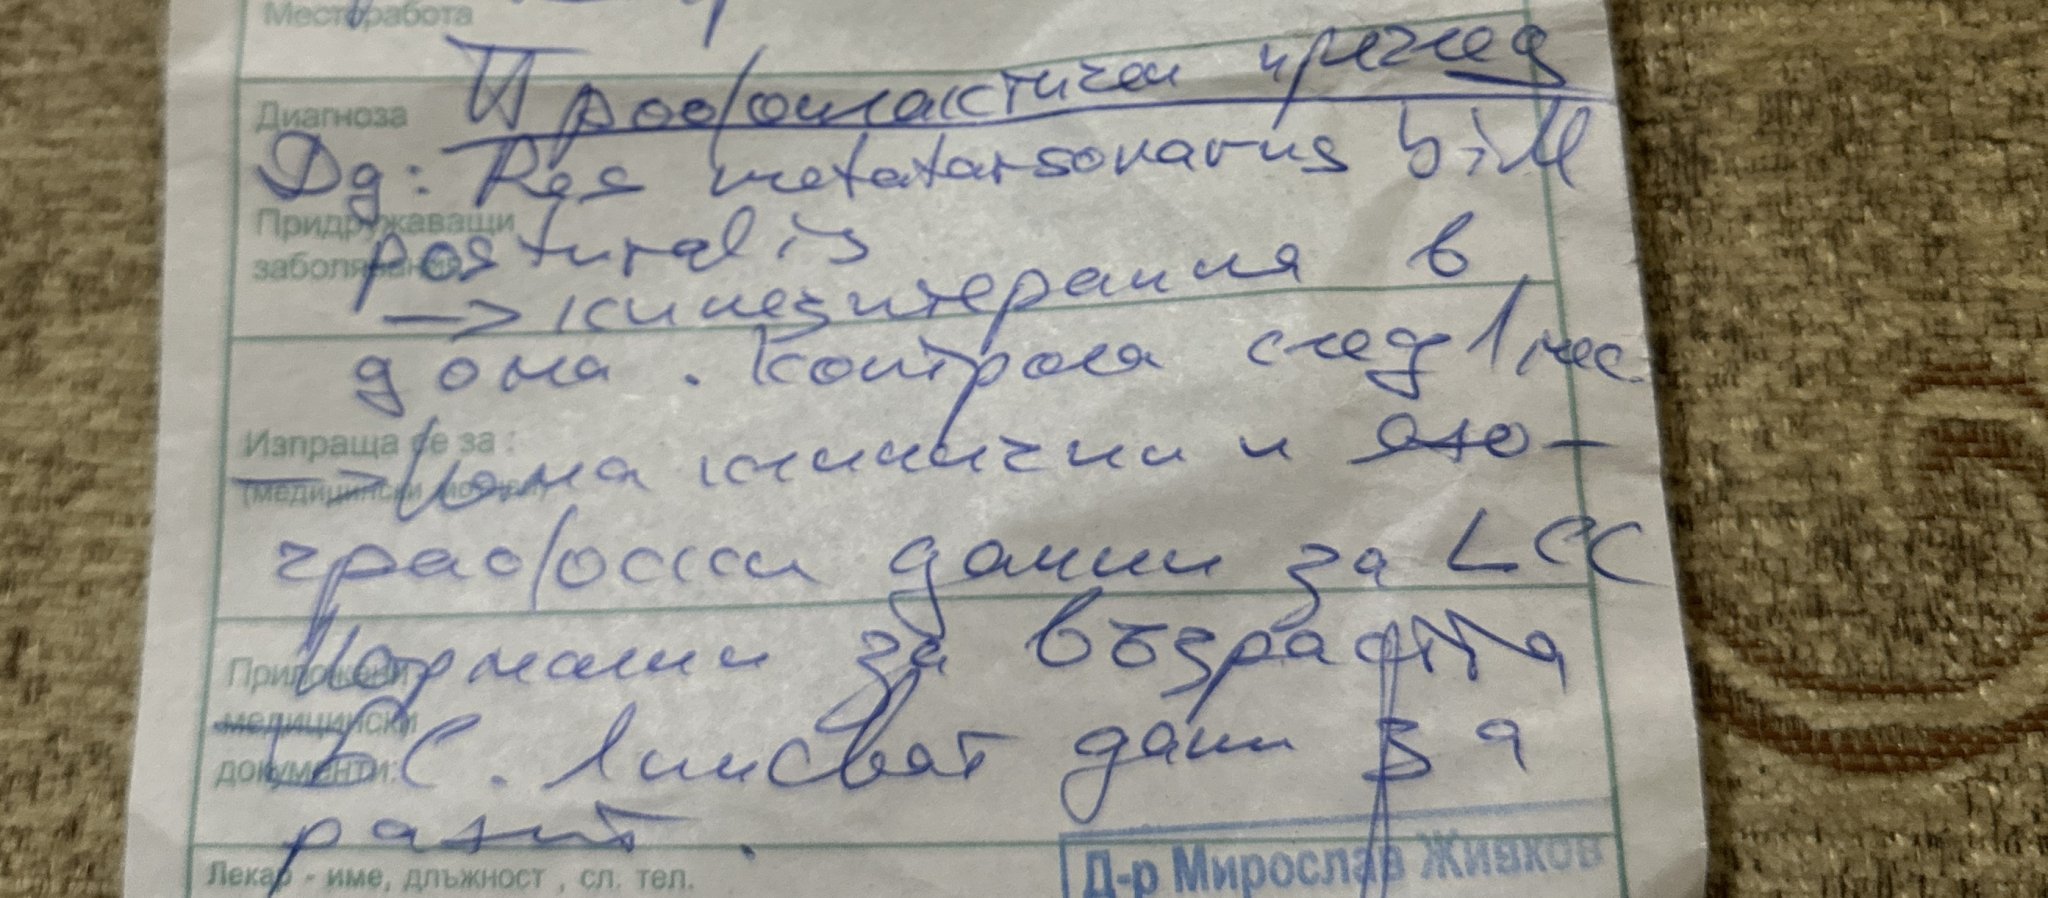 Месторабота
Профилактичен преглед
Диагноза
Dg: Pes metatarsovarus bill
Придружаващи
posturalis
заболявания
→ кинезитерапия в
дома. Контрола след 1 мес.
Изпраща се за :
→ Няма клинични и ехо-
(медицински
графски данни за LCC
Нормални за възрастта
Приложени
медицински
ТБС. Липсват данни за
документи:
рахит.
Лекар - име, длъжност , сл. тел.
Д-р Мирослав Живков